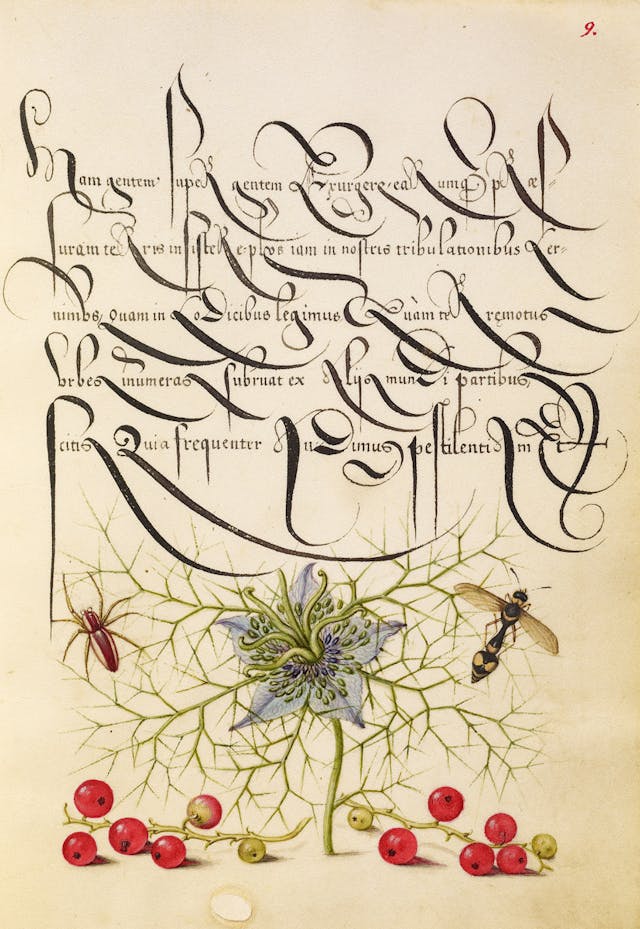 9.
Nam gentem super gentem Exurgere, earumq. præs
suram terris insistere plus iam in nostris tribulationibus Cer=
nimus, Quam in Codicibus legimus. Quàm terrę motus
Vrbes innumeras subruat ex alijs mundi partibus,
scitis Quia frequenter audiuimus pestilentiam Et